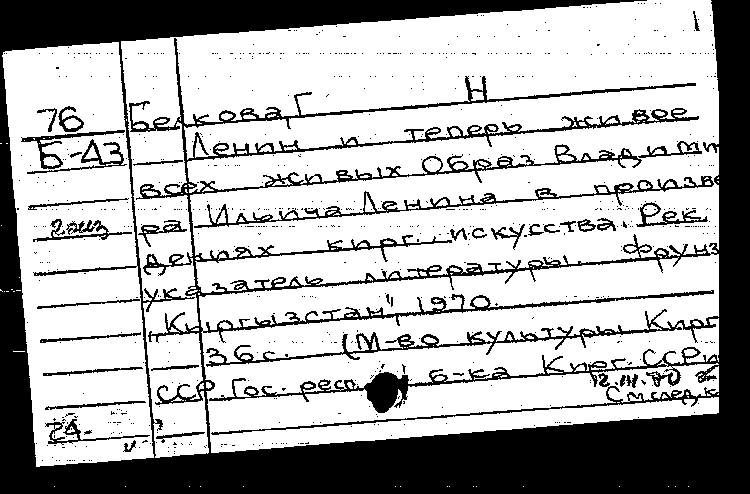 1
76 Белкова, Г Н
Б-43 Ленин и теперь живее
всех живых Образ Владими
2 экз ра Ильича Ленина в произве
дениях кирг. искусства. Рек
указатель литературы. Фрунз
„Кыргызстан", 1970.
36 с. (М-во культуры Кирг
ССР. Гос. респ. б-ка Кирг. ССР
12.III.70
См след. к
24-